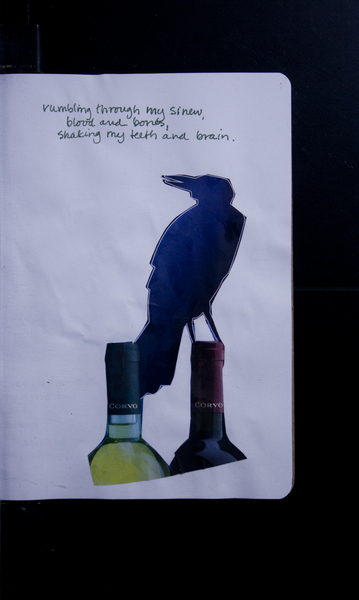 rumbling through my sinew,
blood and bones,
shaking my teeth and brain.
CORVO
CORVO